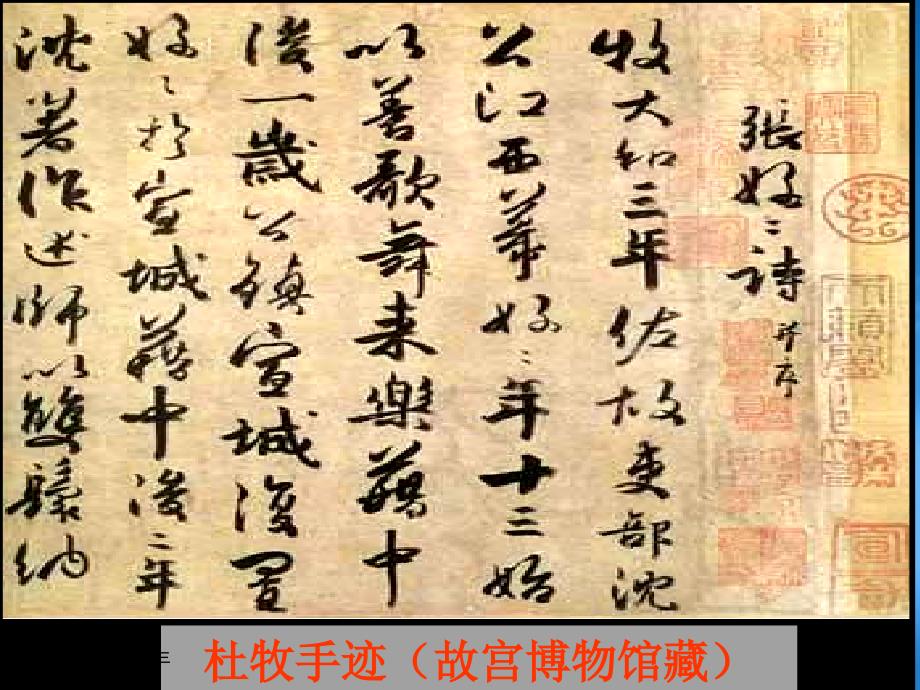 張好〻詩 并序
牧大和三年佐故吏部沈
公江西幕好〻年十三始
以善歌舞来樂藉中
後一歲公鎮宣城復置
好〻於宣城藉中後二年
沈著作述師以雙鬟納
杜牧手迹（故宫博物馆藏）